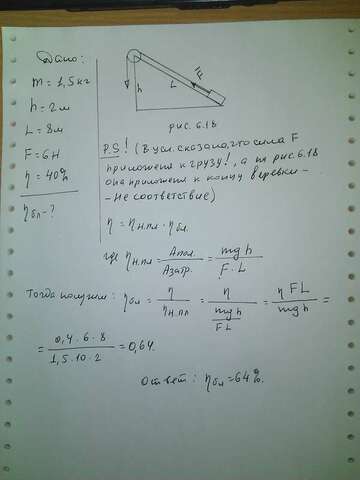 Дано:
m = 1,5 кг
h = 2 м
L = 8 м
F = 6 Н
η = 40%
ηбл - ?
h
L
F
рис. 6.18
P.S! (В усл. сказано, что сила F
приложена к грузу!, а на рис 6.18
она приложена к концу веревки -
- Не соответствие)
η = ηн.пл · ηбл.
где ηн.пл = Апол / Азатр. = mgh / F · L
Тогда получим: ηбл = η / ηн.пл = η / (mgh / FL) = ηFL / mgh =
= 0,4 · 6 · 8 / 1,5 · 10 · 2 = 0,64.
Ответ: ηбл = 64%.